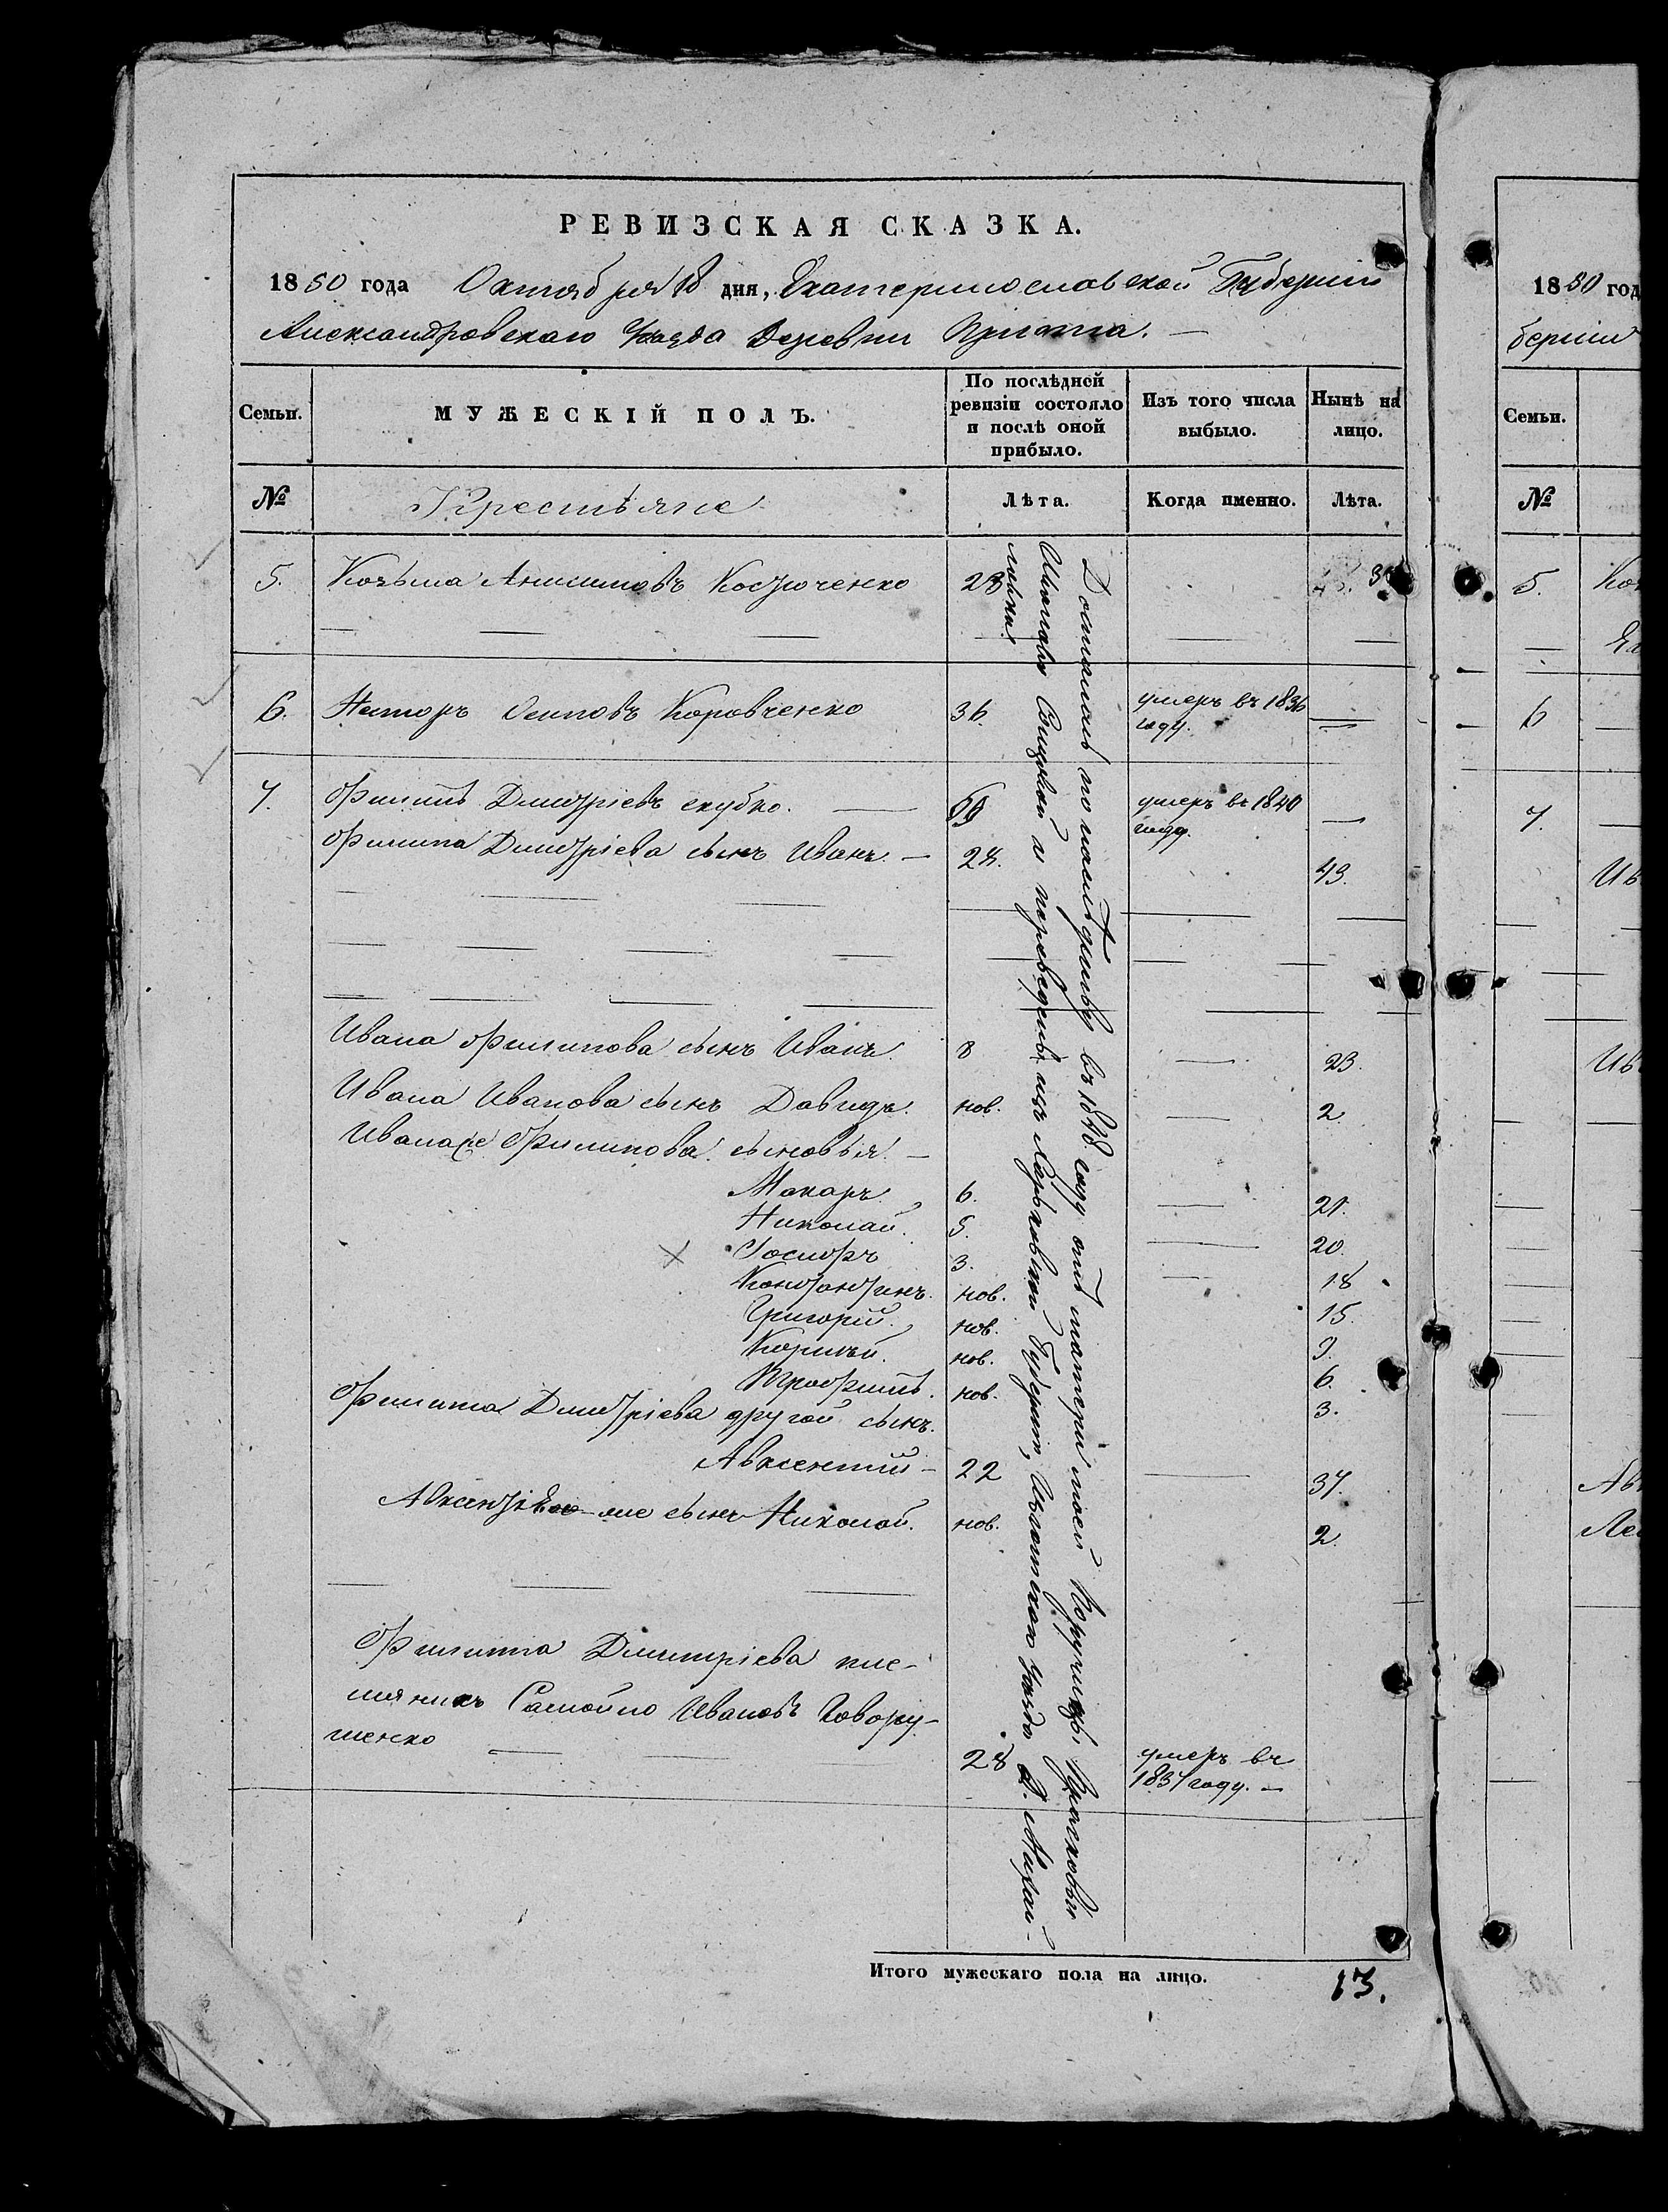 РЕВИЗСКАЯ СКАЗКА.
1850 года Октября 18 дня, Екатеринославской Губерніи
Александровскаго Уѣзда Деревни
Семьи.
МУЖЕСКІЙ ПОЛЪ.
По послѣдней ревизіи состояло и послѣ оной прибыло.
Изъ того числа выбыло.
Нынѣ на лицо.
№
Крестьяне
Лѣта.
Когда именно.
Лѣта.
5. Козьма Анисимовъ Костюченко 23
6. Несторъ Осиповъ Коровченко 36. умеръ въ 1836 году.
7. Филипъ Дмитріевъ скубко. умеръ въ 1840 году.
Филипа Дмитріева сынъ Иванъ 28. 43.
Ивана Филипова сынъ Иванъ. 8 23.
Ивана Иванова сынъ Давидъ. нов. 2.
Иванаже Филипова сыновья.
Макаръ 6. 21.
Николай. 5. 20.
3. 18
Константинъ. нов. 15.
Григорій. нов. 9.
Корнѣй. нов. 6.
Трофимъ. нов. 3.
Филипа Дмитріева другой сынъ.
Авксентий 22 37.
же сынъ Николай. нов. 2.
Филиппа Дмитріева пле-
мяникъ Самойло Ивановъ Говору-
шенко 28 умеръ въ 1837 году.
Достались по наслѣдству въ 1848 году отъ матери моей
и переведены изъ Харьковской Губерніи, Изюмскаго Уѣзда Д. Михай-
ловки
Итого мужескаго пола на лицо. 13.
1850 год
берніи
Семьи.
№
5.
6
7.